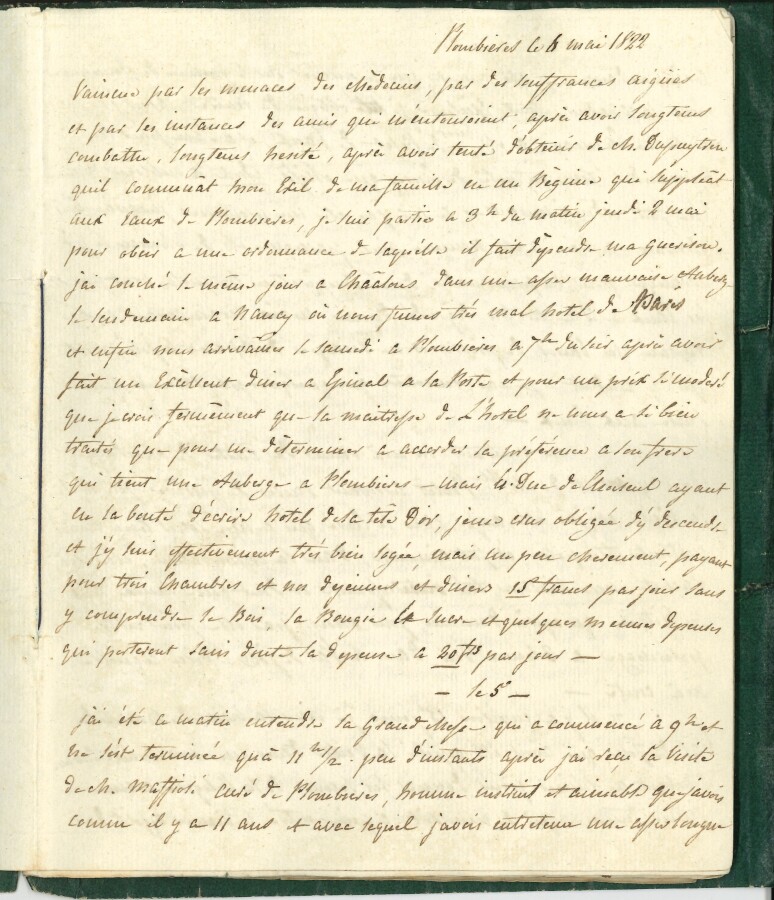 Plombieres le 6 mai 1822
Vaincue par les menaces des Médecins, par des souffrances aigües
et par les instances des amis qui m'entouroient, après avoir longtems
combattu, longtems hesité, après avoir tenté d'obtenir de M. Dupuytren
quil commuât mon Exil de ma famille en un Régime qui suppléât
aux Eaux de Plombières, je suis partie a 3 h du matin jeudi 2 mai
pour obéir a une ordonnance de laquélle il fait dépendre ma guerison.
j'ai couché le même jour a Chââlons dans une assez mauvaise Auberge
le lendemain a Nancy où nous fumes très mal hotel de Paris
et enfin nous arrivâmes le samedi a Plombières a 7 h du soir après avoir
fait un Excéllent diner a Epinal a la Poste et pour un prix si modéré
que je crois fermément que la maitresse de L'hotel ne nous a si bien
traités que pour me déterminer a accorder la préférence a son frere
qui tient une Auberge a Plombières – mais le Duc de Choiseul ayant
eu la bonté d'écrire hotel de la tête D'or, je me crus obligée d'y descendre
et j'y suis effectivement très bien logée, mais un peu cherement, payant
pour trois Chambres et nos dejeuners et diners 15 francs par jour sans
y comprendre le Bois, la Bougie le Sucre et quelques menues dépenses
qui porteront sans doute la depense a 20 frs par jour —
– le 5 –
j'ai été ce matin entendre la Grand Messe qui a commencé à 9 h et
ne s'est terminée qu'à 11 h 1/2. peu d'instants après j'ai reçu la Visite
de M. Maffioli curé de Plombières, homme instruit et aimable que j'avois
connu il y a 11 ans et avec lequel j'avois entretenu une assez longue